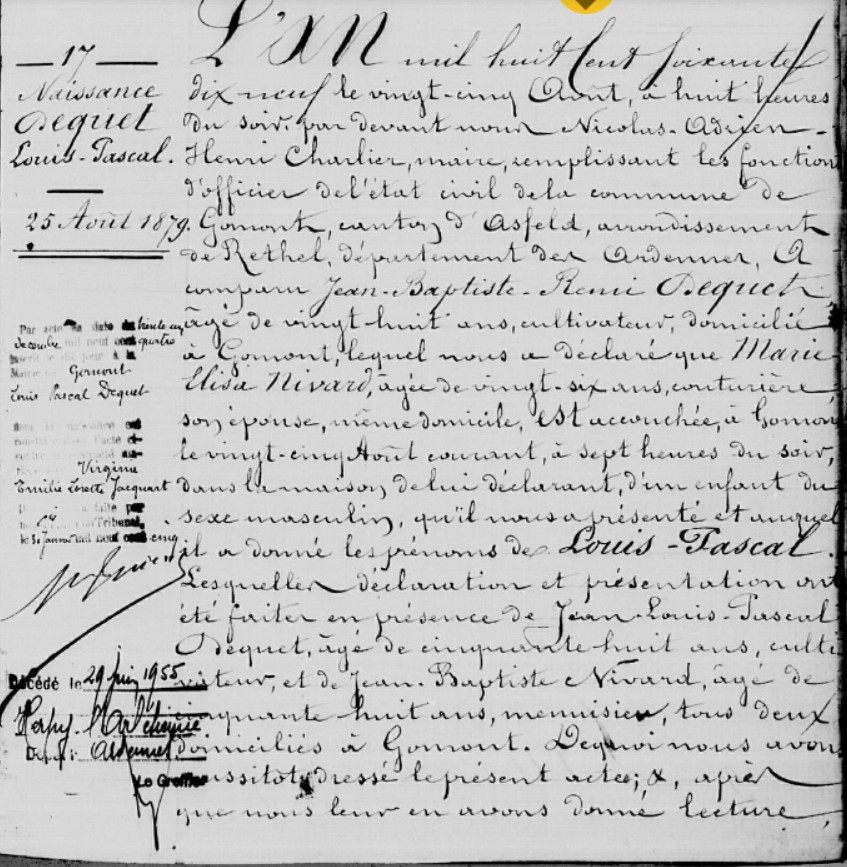 17
Naissance
Dequet
Louis-Pascal.
25 Août 1879.
Par acte en date du trente un
décembre mil neuf cent quatre
inscrit le dit jour à la
Mairie de Gomont
Louis Pascal Dequet
Virginie
Emilie Jacquart
faite par
Tribunal,
le 30 Janvier mil neuf cent cinq
Décédé le 29 juin 1955
Herpy l'Arlésienne
Ardennes
Le Greffier
L'AN mil huit Cent soixante
dix neuf le vingt-cinq Août, à huit heures
du soir, par devant nous Nicolas-Adrien-
Henri Charlier, maire, remplissant les fonction
d'officier de l'état civil de la commune de
Gomont, canton d'Asfeld, arrondissement
de Rethel, département des Ardennes, A
comparu Jean-Baptiste-Remi Dequet,
âgé de vingt-huit ans, cultivateur, domicilié
à Gomont, lequel nous a déclaré que Marie
Elisa Nivard, âgée de vingt-six ans, couturière
son épouse, même domicile, est accouchée, à Gomont
le vingt-cinq Août courant, à sept heures du soir,
dans la maison de lui déclarant, d'un enfant du
sexe masculin, qu'il nous a présenté et auquel
il a donné les prénoms de Louis-Pascal.
Lesquelles déclaration et présentation ont
été faites en présence de Jean-Louis-Pascal
Dequet, âgé de cinquante huit ans, culti
vateur, et de Jean-Baptiste Nivard, âgé de
cinquante huit ans, menuisier, tous deux
domiciliés à Gomont. De quoi nous avons
aussitôt dressé le présent acte; &, après
que nous leur en avons donné lecture,